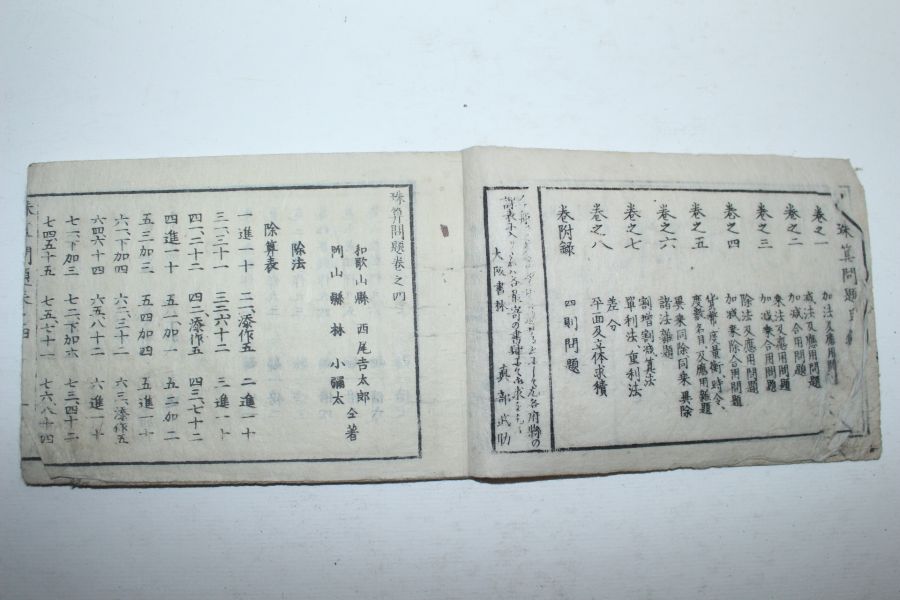 珠算問題
卷之一　加法及應用問題
卷之二　減法及應用問題
加減合用問題
卷之三　乘法及應用問題
加減乘合用問題
卷之四　除法及應用問題
加減乘除合用問題
卷之五　貨幣、度量衡、時令、
度數名目及應用雜題
卷之六　異乘同除同乘異除
諸法雜題
卷之七　割增割減算法
單利法、重利法
卷之八　差分
平面及立体求積
卷附録　四則問題
大阪書林　真部武助
珠算問題卷之四
和歌山縣　西尾吉太郎
岡山縣　林　小彌太　仝著
除法
除算表
一進一十　二一添作五　二進一十
三一三十一　三二六十二　三進一十
四一二十二　四二添作五　四三七十二
四進一十　五一加一　五二加二
五三加三　五四加四　五進一十
六一下加四　六二三十二　六三添作五
六四六十四　六五八十二　六進一十
七一下加三　七二下加六　七三四十二
七四五十五　七五七十一　七六八十四